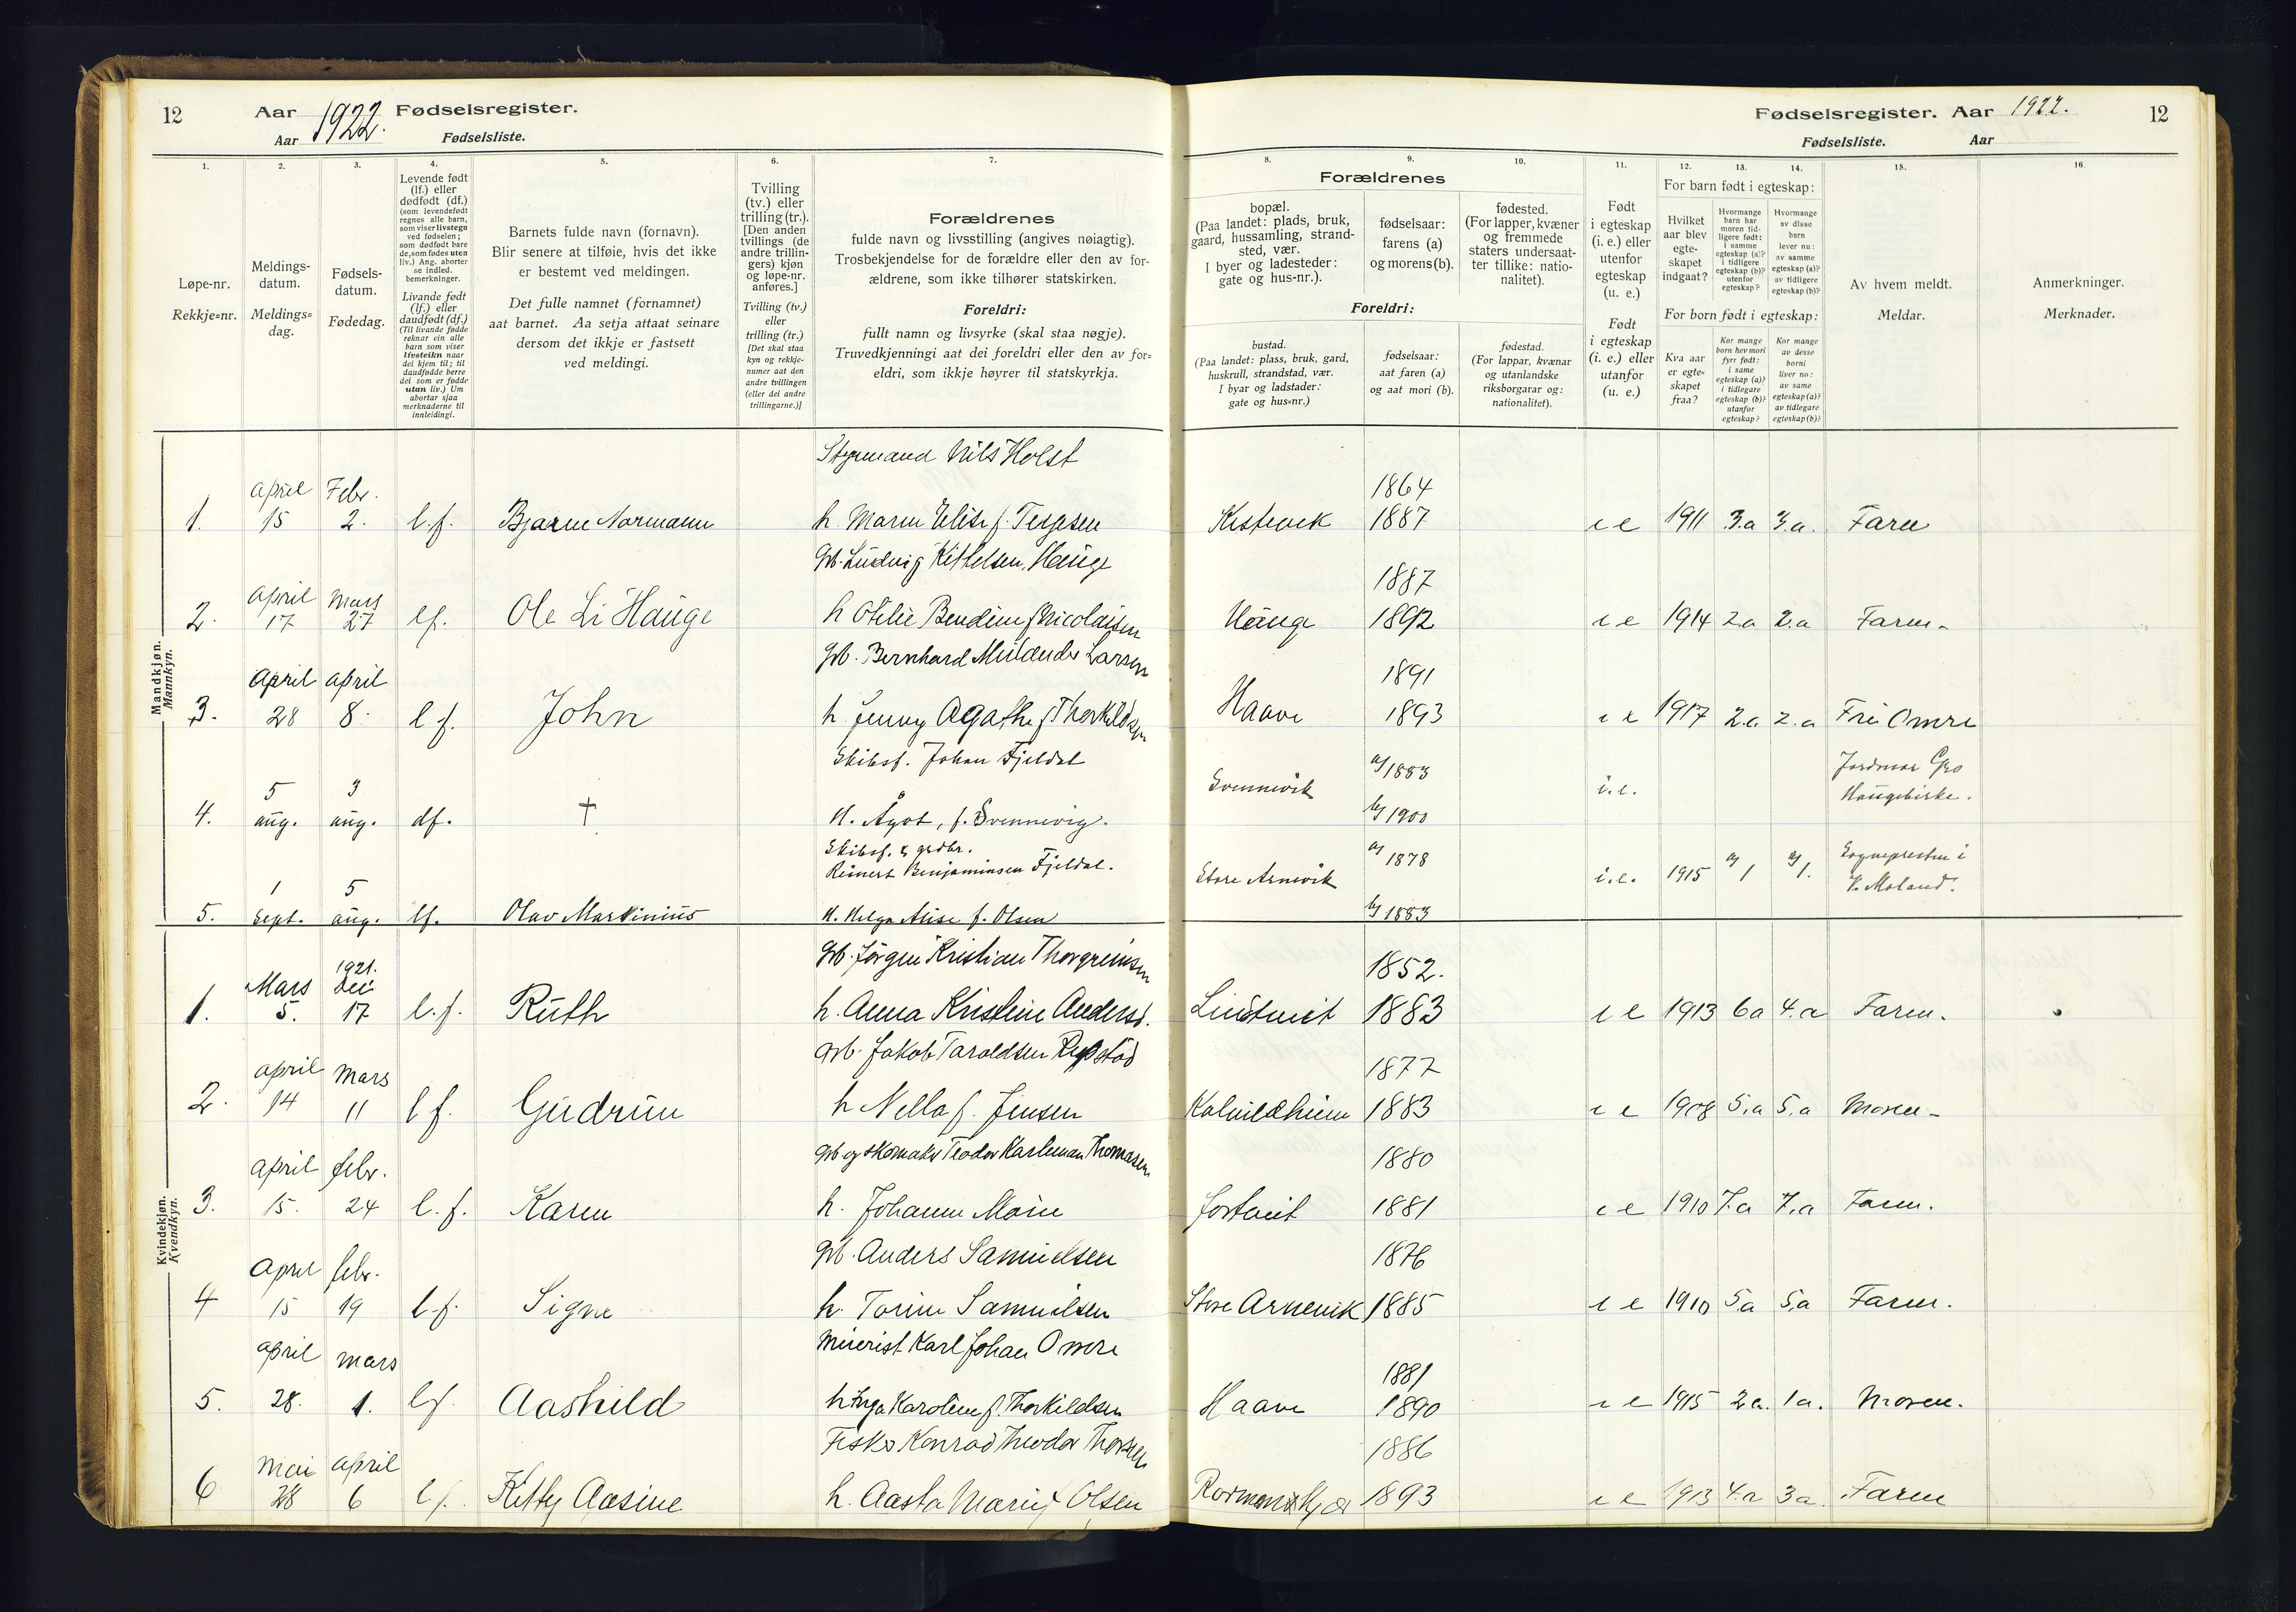 12 Aar 1922. Fødselsregister.
Aar Fødselsliste.
1. 2. 3. 4. 5. 6. 7.
Løpe-nr.
Rekkje=nr.
Meldings-
datum.
Meldings=
dag.
Fødsels-
datum.
Fødedag.
Levende født
(lf.) eller
dødfødt (df.)
(som levendefødt
regnes alle barn,
som viser livstegn
ved fødselen;
som dødfødt bare
de, som fødes uten
liv.) Ang. aborter
se indled.
bemerkninger.
Livande født
(lf.) eller
daudfødt (df.)
(Til livande fødde
reknar ein alle
barn som viser
livsteikn naar
dei kjem til; til
daudfødde berre
dei som er fødde
utan liv.) Um
abortar sjaa
merknaderne til
innleidingi.
Barnets fulde navn (fornavn).
Blir senere at tilføie, hvis det ikke
er bestemt ved meldingen.
Det fulle namnet (fornamnet)
aat barnet. Aa setja attaat seinare
dersom det ikkje er fastsett
ved meldingi.
Tvilling
(tv.) eller
trilling (tr.).
[Den anden
tvillings (de
andre trillin-
gers) kjøn
og løpe-nr.
anføres.]
Tvilling (tv.)
eller
trilling (tr.)
[Det skal staa
kyn og rekkje-
numer aat den
andre tvillingen
(eller dei andre
trillingarne.)]
Forældrenes
fulde navn og livsstilling (angives nøiagtig).
Trosbekjendelse for de forældre eller den av for-
ældrene, som ikke tilhører statskirken.
Foreldri:
fullt namn og livsyrke (skal staa nøgje).
Truvedkjenningi aat dei foreldri eller den av for=
eldri, som ikkje høyrer til statskyrkja.
Mandkjøn.
Mannkyn.
Styrmand Nils Holst
1. April 15 Febr. 2. l.f. Bjarne Normann h. Maren Elise f. Terjesen
Gb. Ludvig Kittelsen, Hauge
2. April 17 Mars 27 lf. Ole Li Hauge h Otilie Bendine f Nicolaisen
Gb. Bernhard Larsen
3. April 28 April 8. l f. John h. Jenny Agathe f Thorkildsen
Skibsf. Johan Fjeldal
4. 5 aug. 3 aug. df. † H. Ågot, f. Svennevig.
Skibsf. & grdbr.
Reinert Benjaminsen Fjeldal.
5. 1 Sept. 5 aug. lf. Olav Martinius H. Helga Alise f. Olsen
Kvindekjøn.
Kvendkyn.
Gb. Jörgen Kristian Thorgrimsen
1. Mars 5. 1921. Dec 17 l.f. Ruth h. Anna Kristine Andersd.
Gb. Jakob Taraldsen
2. April 14 Mars 11 l f. Gudrun h Nella f. Jensen
Gb og skomaker Teodor Karleman Thomasen
3. April 15. febr. 24 l.f. Karen h. Johanne Marie
Gb. Anders Samuelsen
4 April 15 febr. 19 l.f. Signe h. Torine Samuelsen
Meierist Karl Johan Omre
5. April 28. Mars 1. lf. Aashild h Inga Karoline f. Thorkildsen
Fisker Konrad Theodor Thorsen
6 Mai 28 April 6 l f. Kitty Aasine h. Aasta Marie f Olsen
Fødselsregister. Aar 1922. 12
Fødselsliste. Aar
8. 9. 10. 11. 12. 13. 14. 15. 16.
Forældrenes
bopæl.
(Paa landet: plads, bruk,
gaard, hussamling, strand-
sted, vær.
I byer og ladesteder:
gate og hus-nr.).
fødselsaar:
farens (a)
og morens (b).
fødested.
(For lapper, kvæner
og fremmede
staters undersaat-
ter tillike: natio-
nalitet).
Foreldri:
bustad.
(Paa landet: plass, bruk, gard,
huskrull, strandstad, vær.
I byar og ladstader:
gate og hus=nr.)
fødselsaar:
aat faren (a)
og aat mori (b).
fødestad.
(For lappar, kvænar
og utanlandske
riksborgarar og:
nationalitet).
Født
i egteskap
(i. e.) eller
utenfor
egteskap
(u. e.)
Født
i egteskap
(i. e.) eller
utanfor
(u. e.)
For barn født i egteskap:
Hvilket
aar blev
egte-
skapet
indgaat?
Hvormange
barn har
moren tid-
ligere født:
i samme
egteskap (a)?
i tidligere
egteskap (b)?
utenfor
egteskap?
Hvormange
av disse
barn
lever nu:
av samme
egteskap (a)?
av tidligere
egteskap (b)?
For born født i egteskap:
Kva aar
er egte=
skapet
fraa?
Kor mange
born hev mori
fyrr født:
i same
egteskap (a)?
i tidlegare
egteskap (b)?
utanfor
egteskap?
Kor mange
av desse
borni
liver no:
av same
egteskap (a)?
av tidlegare
egteskap (b)?
Av hvem meldt.
Meldar.
Anmerkninger.
Merknader.
1864
1887 i e 1911 3.a 3.a. Faren
1887
Hauge 1892 i e 1914 2.a 2.a Faren.
1891
Haave 1893 i e 1917 2.a 2.a Fru Omre
Svennevik a/ 1883 b/ 1900 i.e. Jordmor Gro
Haugebirke.
Store Arnevik a/ 1878 b/ 1883 i.e. 1915 a/ 1 a/ 1. Sognepresten i
V. Moland.
1852.
Lindtveit 1883 i e 1913 6 a 4.a Faren.
1877
Kalvildheien 1883 i e 1908 5.a 5.a Moren
1880
1881 i e 1910 7.a 7.a Faren.
1876
Store Arnevik 1885 i e 1910 5a 5.a Faren.
1881
Haave 1890 i e 1915 2 a. 1 a. Moren.
1886
1893 i e 1913 4.a 3 a. Faren